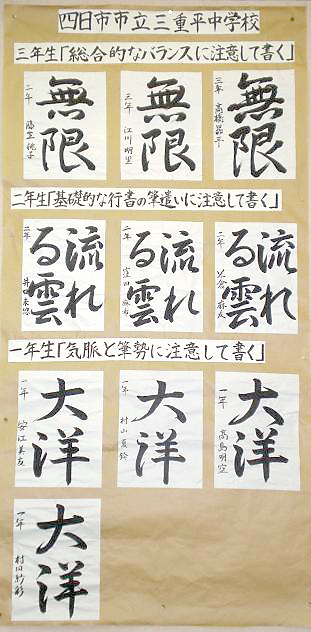 四日市市立三重平中学校
三年生「総合的なバランスに注意して書く」
無限
三年 高橋
無限
三年 江川明里
無限
三年
二年生「基礎的な行書の筆遣いに注意して書く」
流れ
る雲
二年
流れ
る雲
二年 窪田
流れ
る雲
二年 井田
一年生「気脈と筆勢に注意して書く」
大洋
一年 高島明空
大洋
一年 村山真鈴
大洋
一年 安江美友
大洋
一年 村田紗彩